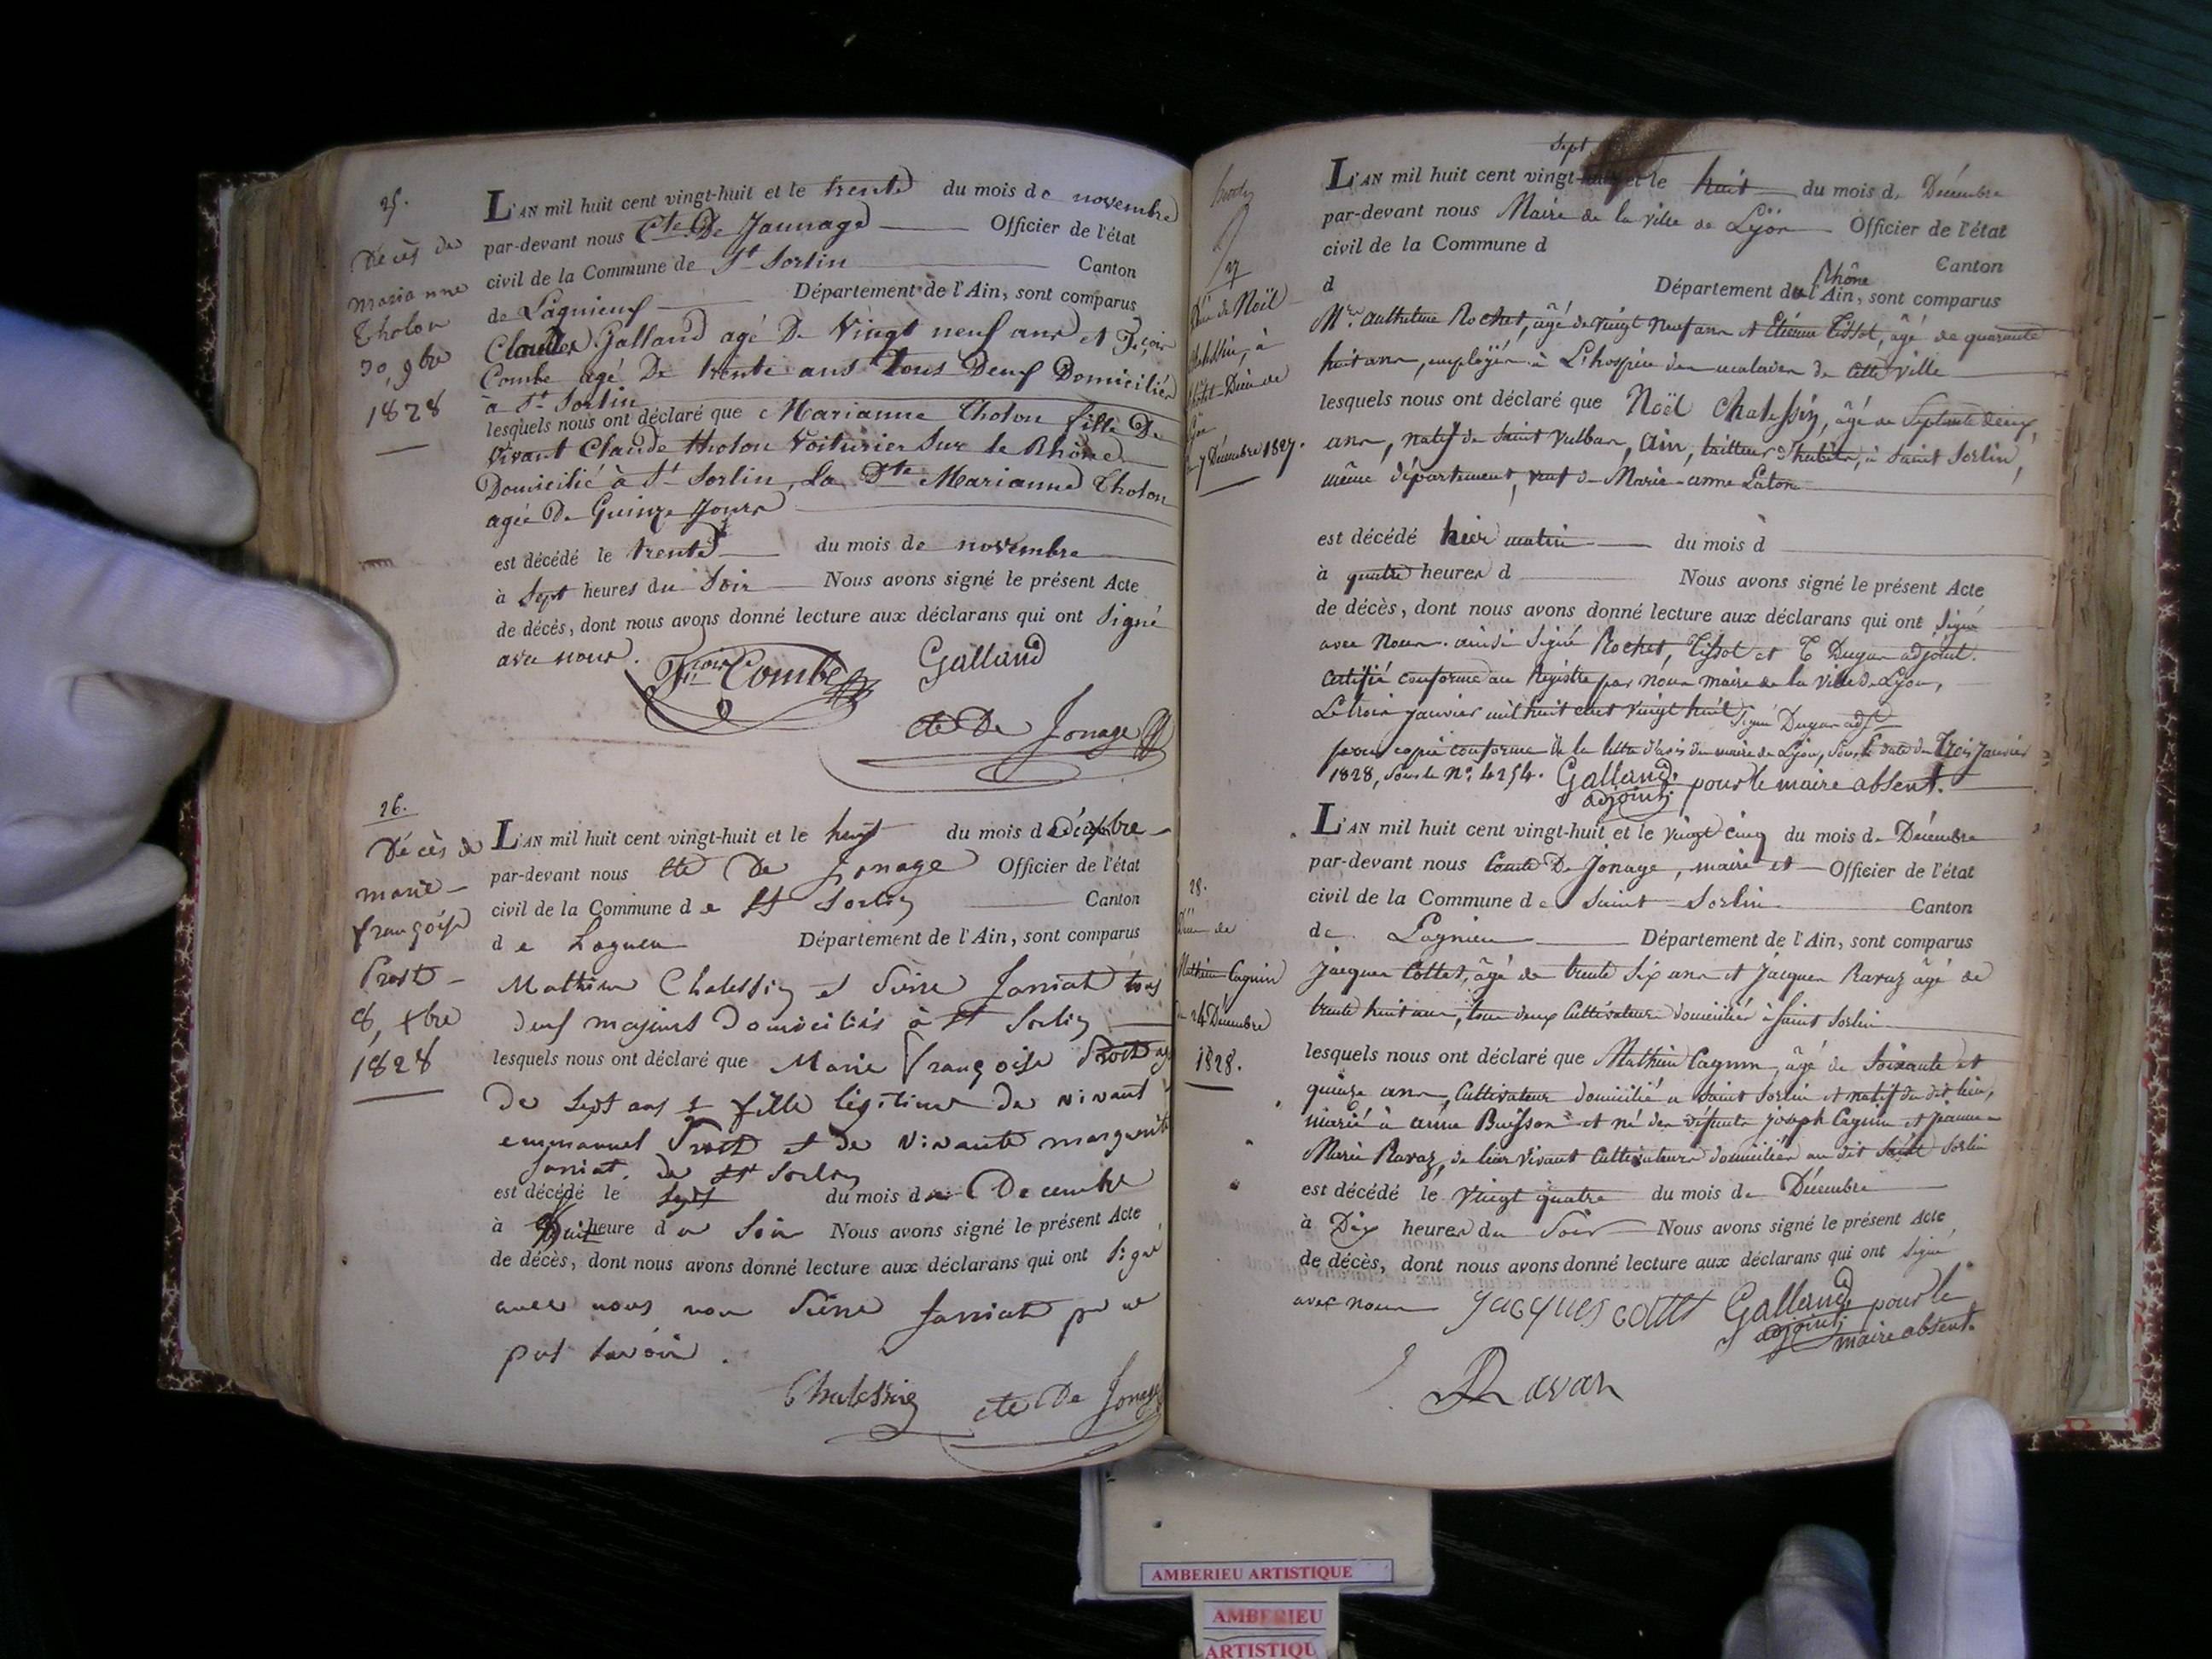 25.
Décès de
marianne
tholon
30, 9bre
1828
L'AN mil huit cent vingt-huit et le trente du mois de novembre
par-devant nous Cte. De Jaunage Officier de l'état
civil de la Commune de St Sorlin Canton
de Lagnieux Département de l'Ain, sont comparus
Claude Galland agé De Vingt neuf ans et Fçois
Combe agé De trente ans tous Deux Domiciliés
à St Sorlin
lesquels nous ont déclaré que Marianne tholon fille De
vivant Claude tholon Voiturier Sur le Rhône
Domicilié à St Sorlin, La Dte Marianne Tholon
agée De Quinze Jours
est décédé le trente du mois de novembre
à Sept heures du Soir Nous avons signé le présent Acte
de décès, dont nous avons donné lecture aux déclarans qui ont signé
avec nous. Fçois Combe Galland
cte De Jonage
26.
Décès de
marie
françoise
Prost
8, xbre
1828
L'AN mil huit cent vingt-huit et le huit du mois de décbre
par-devant nous cte De Jonage Officier de l'état
civil de la Commune de St Sorlin Canton
de Lagneu Département de l'Ain, sont comparus
Mathieu Chalessin et Pierre Janiat tous
deux majeurs domiciliés à St Sorlin
lesquels nous ont déclaré que Marie Françoise Prost
de sept ans fille légitime de vivant
emmanuel Prost et de vivante marguerite
Janiat, de St Sorlin
est décédé le sept du mois de Decembre
à huit heure du Soir Nous avons signé le présent Acte
de décès, dont nous avons donné lecture aux déclarans qui ont signé
avec nous non Pierre Janiat pr ne
pas savoir.
Chalessin cte De Jonage
27
Décès de Noël
Chalessin, à
l'hôtel-Dieu de
Lyon
7 Décembre 1827.
Sept
L'AN mil huit cent vingt et le huit du mois de Décembre
par-devant nous Maire de la ville de Lyon Officier de l'état
civil de la Commune d
Canton
d Département du Rhône l'Ain, sont comparus
Mrs. anthelme Rochet, âgé de vingt neuf ans et Etiénne Tissot, âgé de quarante
huit ans, employés à L'hospice des malades de cette ville
lesquels nous ont déclaré que Noël chalessin, âgé de Septante deux
ans, natif de Saint Vulbas, Ain, tailleur d'habits, à Saint Sorlin,
même département, veuf de Marie-anne Laton
est décédé hier matin du mois d
à quatre heures d Nous avons signé le présent Acte
de décès, dont nous avons donné lecture aux déclarans qui ont signé
avec Nous. ainsi signé Rochet, Tissot et Dugas adjoint.
Certifié conforme au Régistre par nous maire de la ville de Lyon,
Le trois Janvier mil huit cent vingt huit signé Dugas adjt
pour copie conforme de la lettre d'avis du maire de Lyon, sous la date du Trois Janvier
1828, sous le No. 4254. Galland, pour le maire absent.
adjoint
28.
Décès de
Mathieu Cagnin
du 24 Décembre
1828.
L'AN mil huit cent vingt-huit et le vingt cinq du mois de Décembre
par-devant nous Comte De Jonage, maire et Officier de l'état
civil de la Commune de Saint Sorlin Canton
de Lagnieu Département de l'Ain, sont comparus
Jacques Cottet, âgé de trente six ans et Jacques Ravaz âgé de
trente huit ans, tous deux Cultivateurs domiciliés à Saint Sorlin
lesquels nous ont déclaré que Mathieu Cagnin, âgé de Soixante et
quinze ans, Cultivateur domicilié à Saint Sorlin et natif du dit lieu,
marié à anne Buisson et né des défunts joseph Cagnin et jeanne
Marie Ravaz, de leur vivant Cultivateurs domiciliés au dit Saint Sorlin
est décédé le vingt quatre du mois de Décembre
à Dix heures du Soir Nous avons signé le présent Acte
de décès, dont nous avons donné lecture aux déclarans qui ont signé
avec nous Jacques cottet Galland pour le
adjoint maire absent.
Ravan
AMBERIEU ARTISTIQUE
AMBERIEU
ARTISTIQU